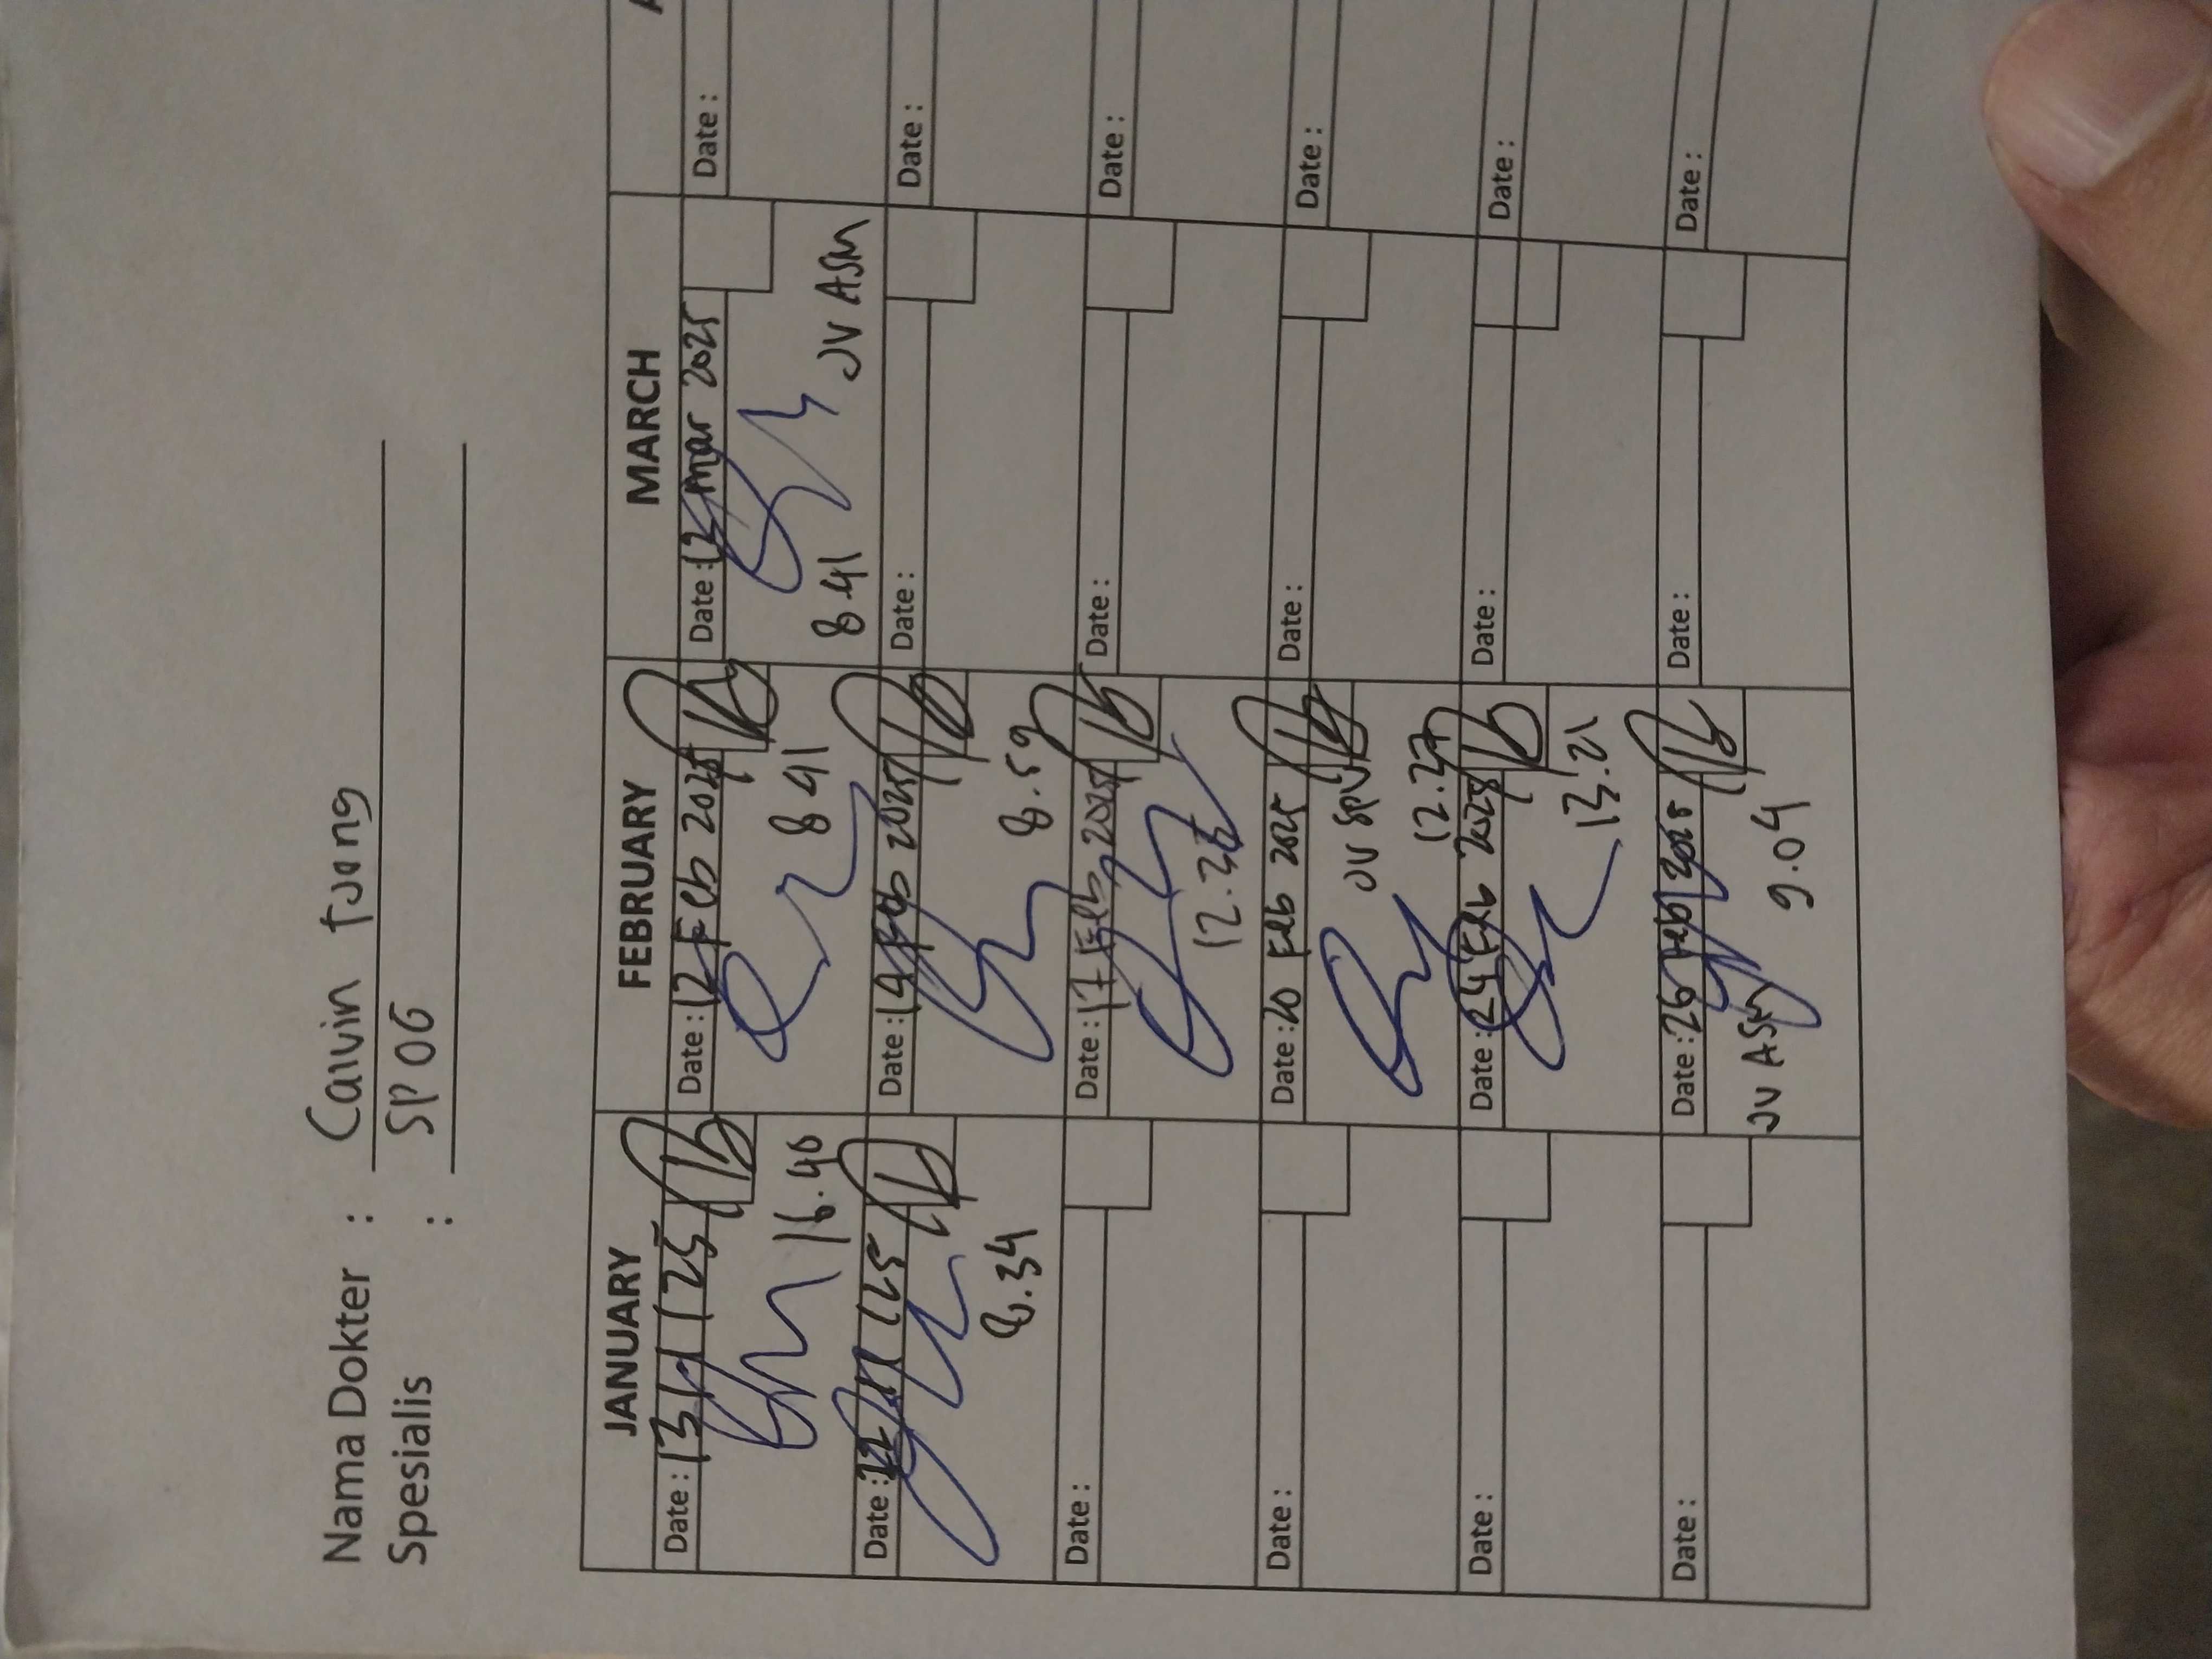 Nama Dokter : Calvin Tjong
Spesialis : SPOG
JANUARY FEBRUARY MARCH
Date : 13/1/25 Date : 12 Feb 2025 Date : 12 Mar 2025 Date :
16.40 8 41 8 41 JV ASM
Date : 22/1/25 Date : 14 Feb 2025 Date : Date :
8.34 8.59
Date : Date : 17 Feb 2025 Date : Date :
Date : Date : 20 Feb 2025 Date : Date :
JV SPV
12.27
Date : Date : 24 Feb 2025 Date : Date :
13.21
Date : Date : 26 Feb 2025 Date : Date :
JV ASM 9.04